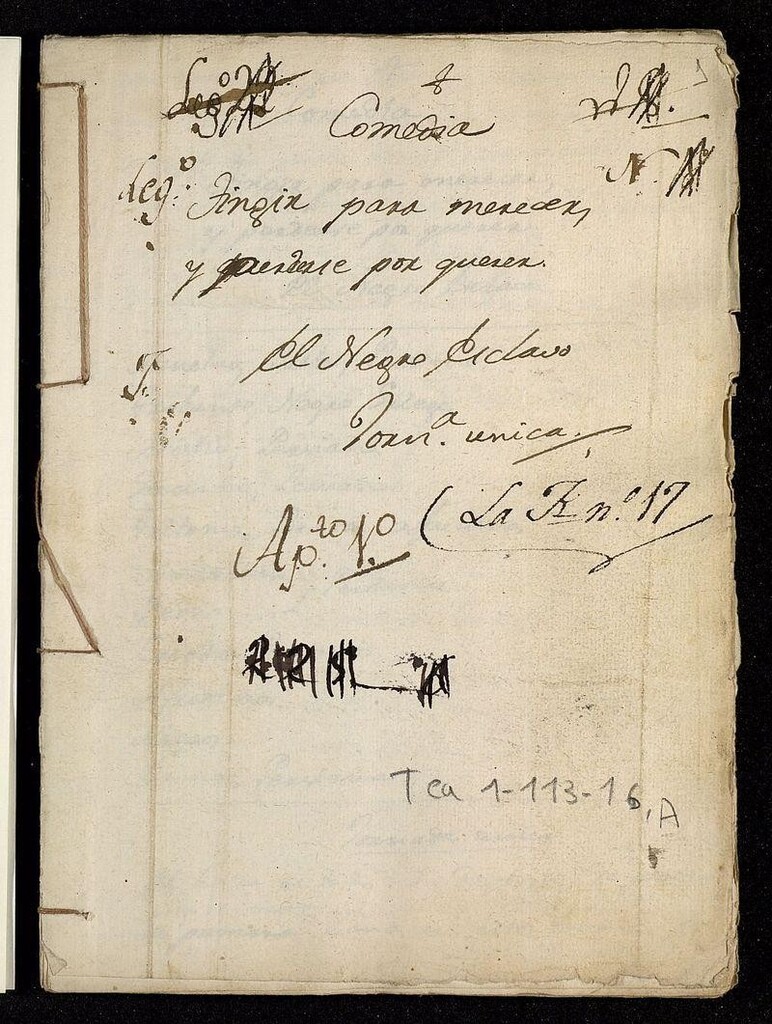 Leg.º
Comedia
N.
Leg.º
Fingir para merecer,
y perderse por querer.
El Negro Esclavo
Jorn.ª unica.
Ap.to 1.º
La F. n.º 17
Tea 1-113-16, A